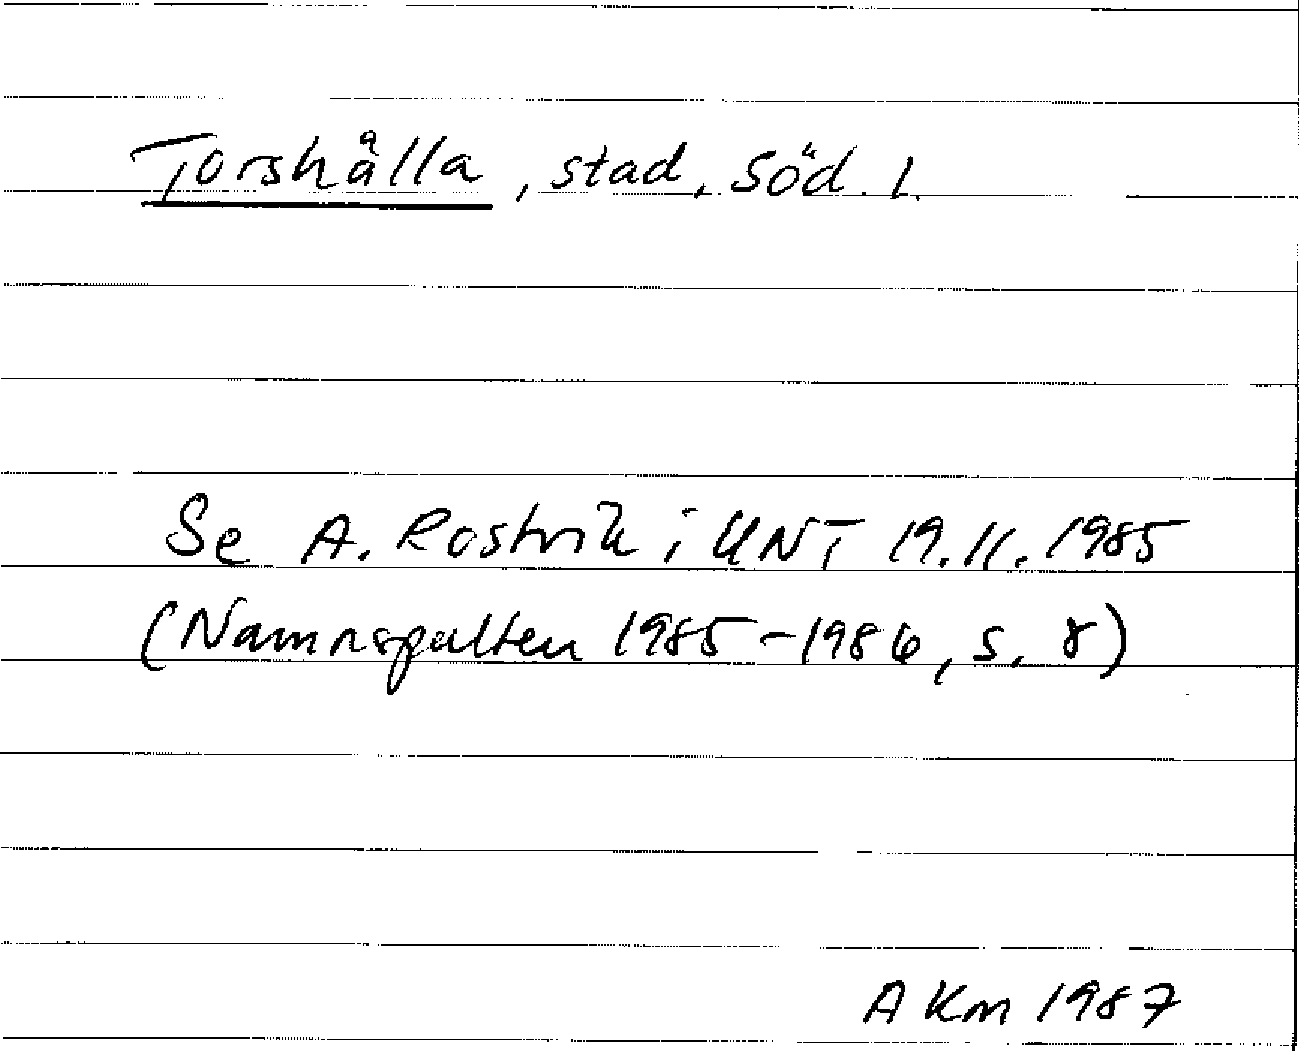 Torshålla, stad, Söd. l.
Se A. Rostvik i UNT 19.11.1985
(Namnspalten 1985-1986, s. 8)
AKm 1987